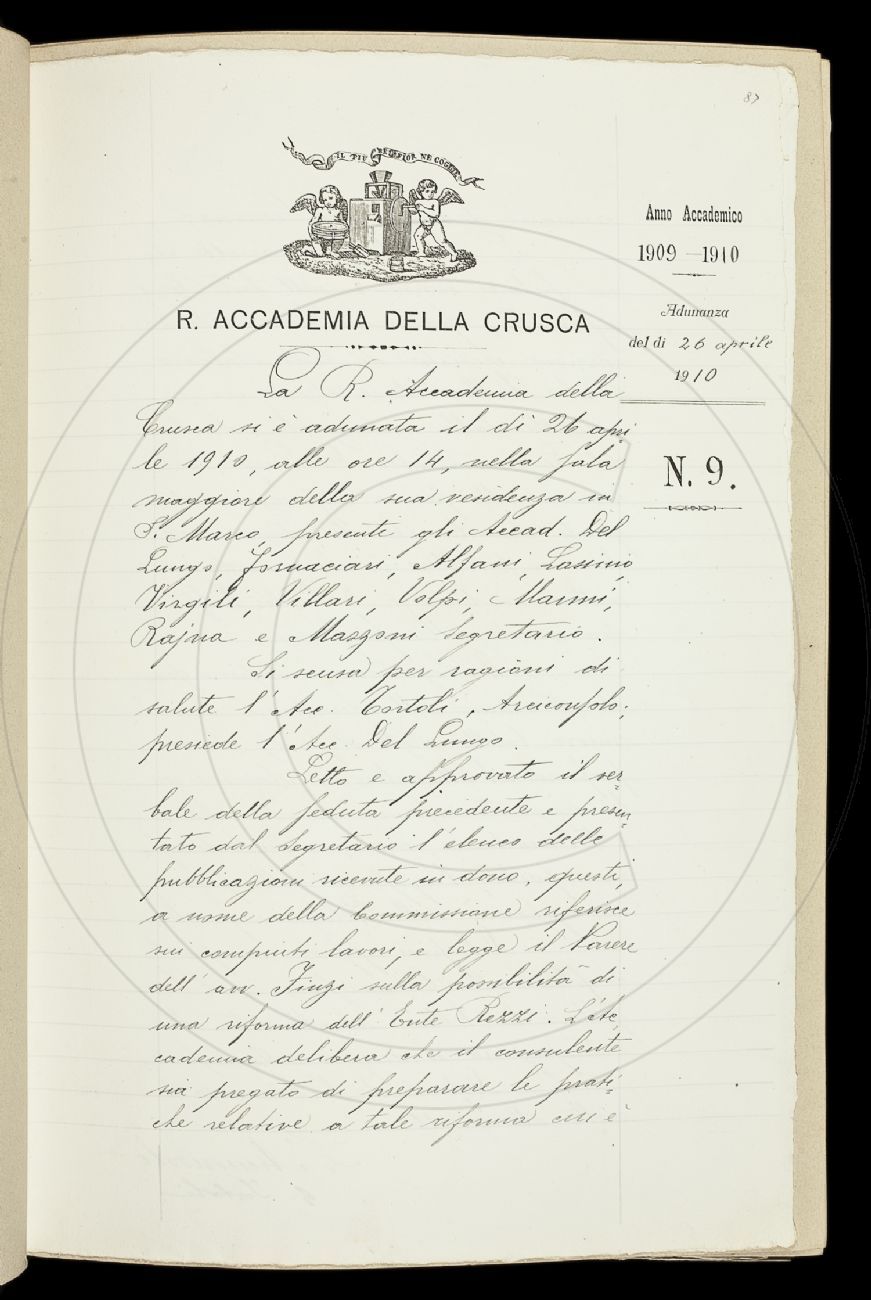 87
IL PIÙ BEL FIOR NE COGLIE
Anno Accademico
1909-1910
Adunanza
del dì 26 aprile
1910
N. 9.
R. ACCADEMIA DELLA CRUSCA
La R. Accademia della
Crusca si è adunata il dì 26 apri
le 1910, alle ore 14, nella Sala
maggiore della sua residenza in
S. Marco, presenti gli Accad. Del
Lungo, Fornaciari, Alfani, Lasinio,
Virgili, Villari, Volpi, Marmi,
Rajna e Mazzoni Segretario.
Si scusa per ragioni di
salute l'Acc. Tortoli, Arciconsolo;
presiede l'Acc. Del Lungo.
Letto e approvato il ver-
bale della seduta precedente e presen-
tato dal Segretario l'elenco delle
pubblicazioni ricevute in dono, questi,
a nome della Commissione riferisce
sui compiuti lavori, e legge il Parere
dell'avv. Finzi sulla possibilità di
una riforma dell'Ente Rezzi. L'Ac
cademia delibera che il consulente
sia pregato di preparare le prati-
che relative a tale riforma cui è